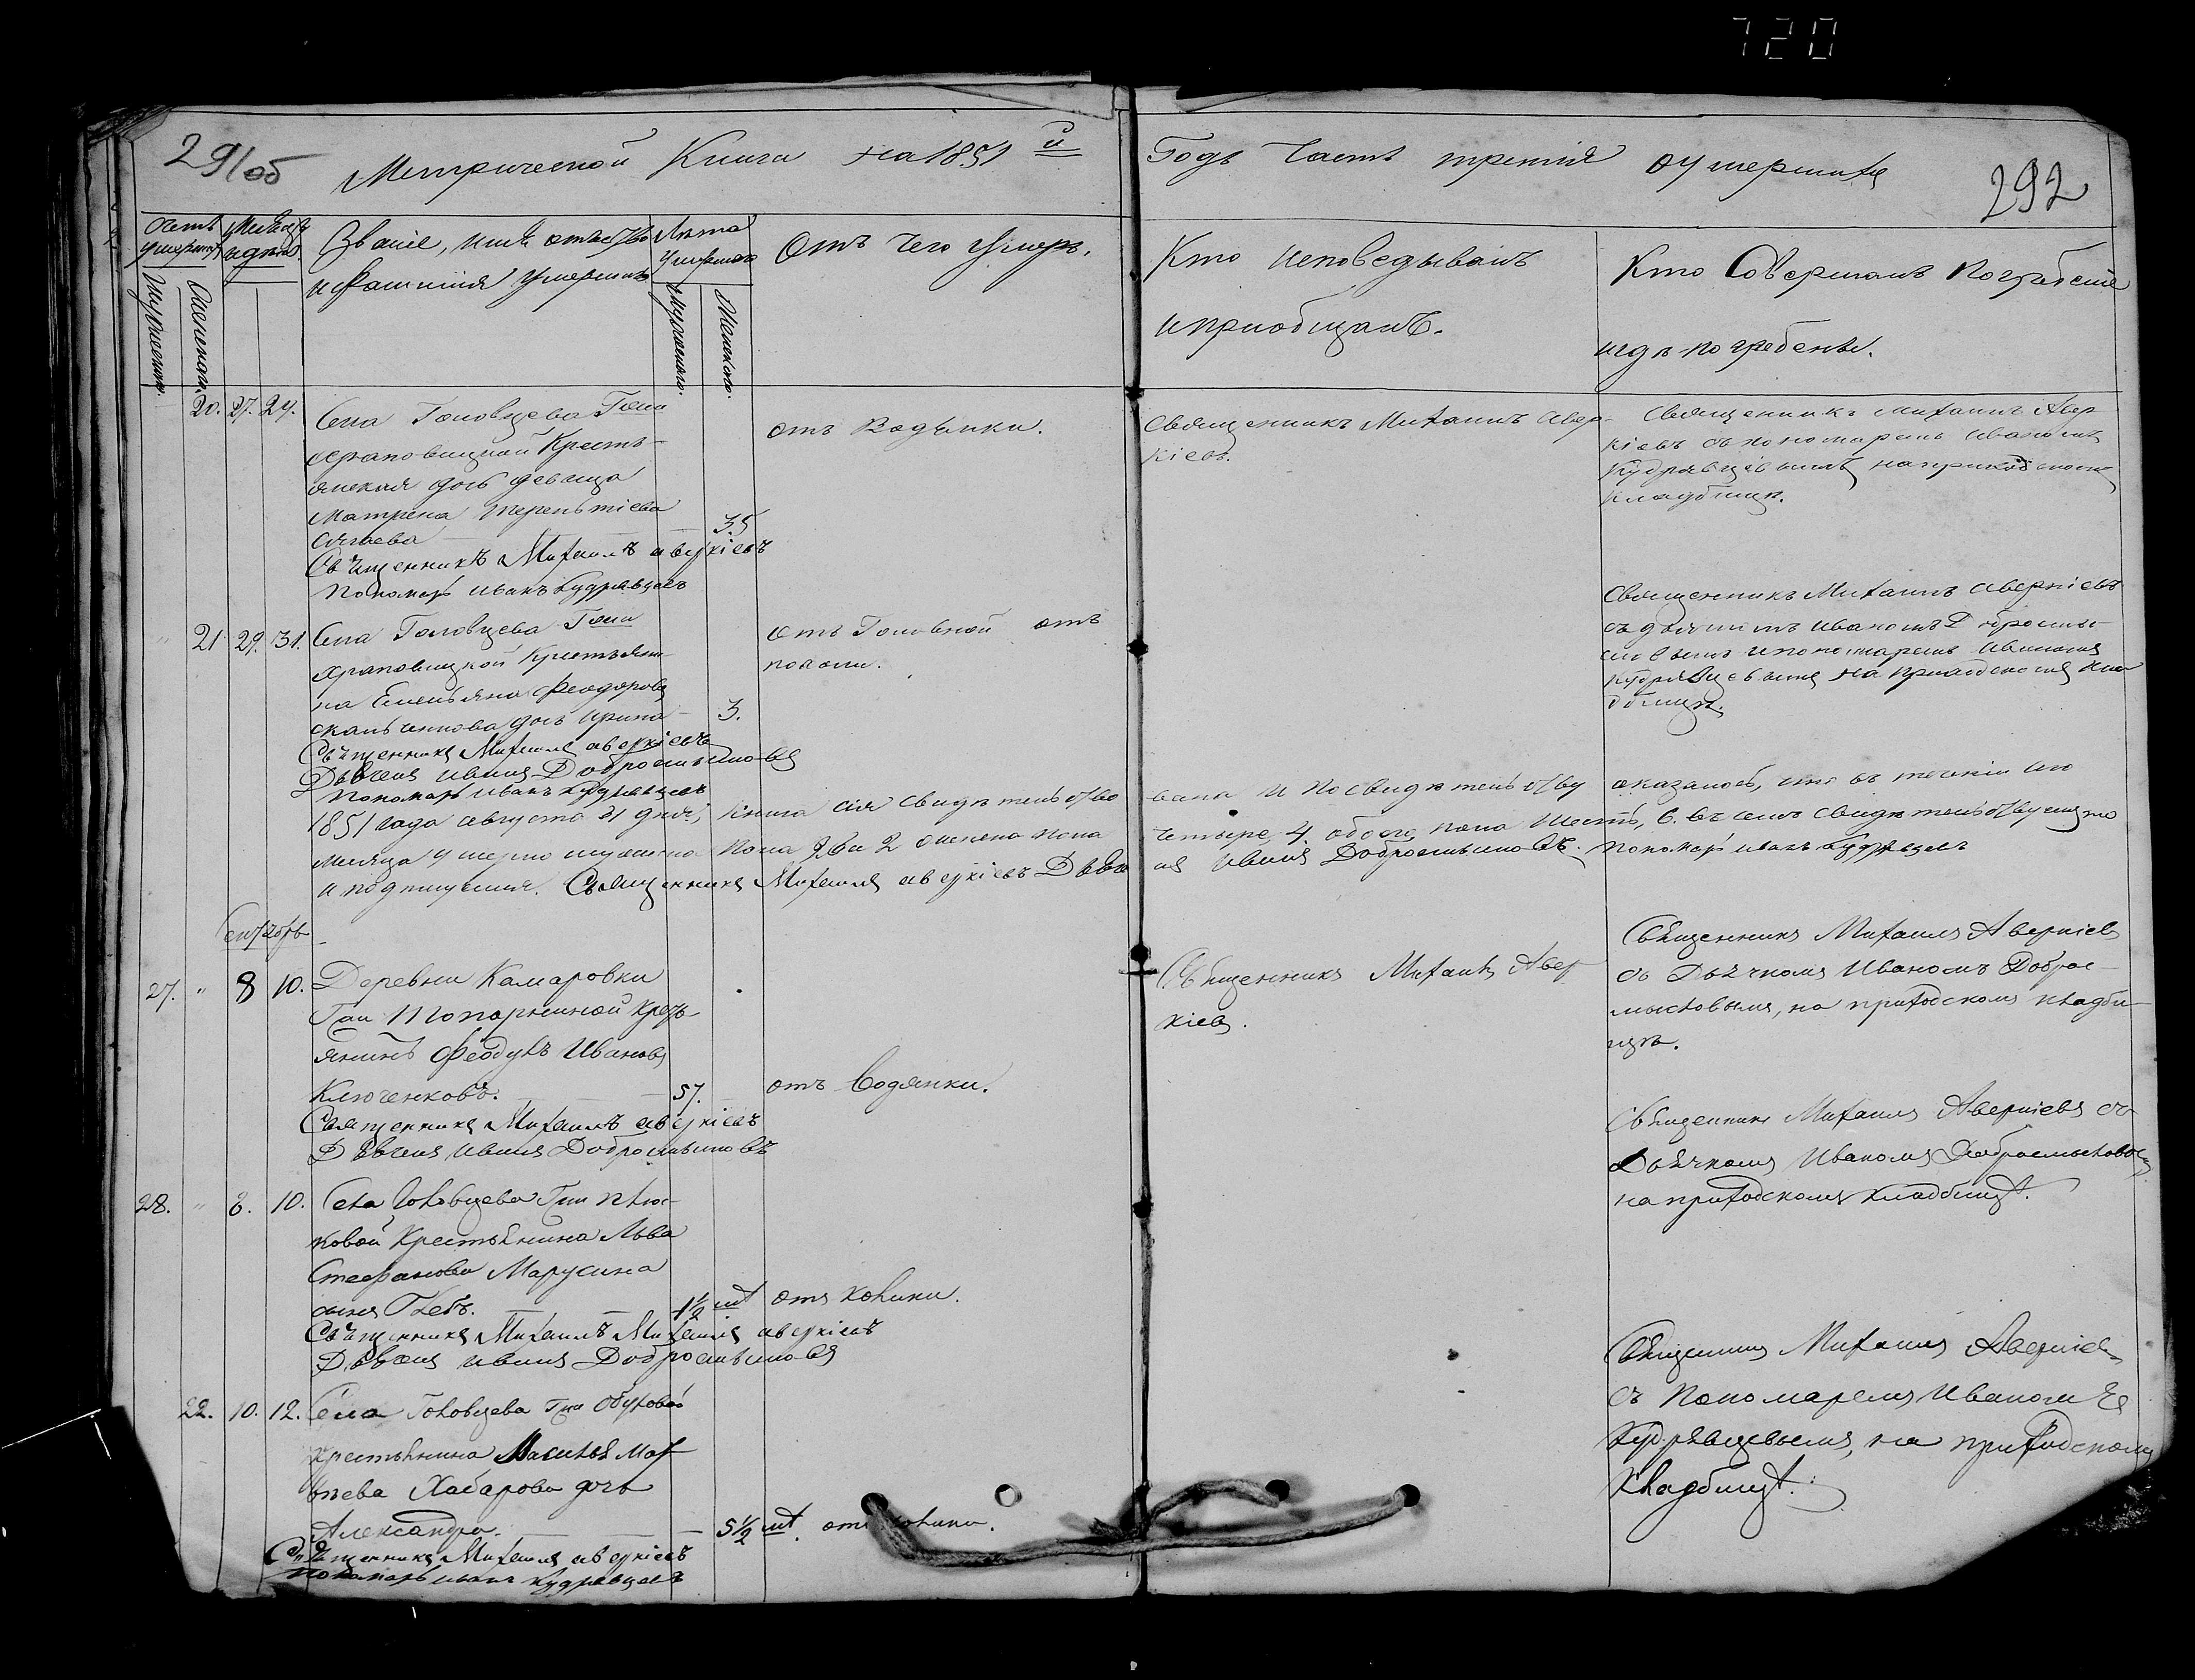 720
291об
Метрической Книги на 1851 й
Годъ Часть третія оумершихъ
292
Счетъ умершихъ
Мужеска.
Женска.
Месяцъ и день
Званіе, имя, отчество
и фамилія умершихъ
Лета умершаго
Мужескаго.
Женскаго.
Отъ чего умеръ.
Кто исповедывалъ
и пріобщалъ.
Кто Совершалъ погребеніе
и где погребены.
20. 27. 29.
Села Головцева Гпжи
Храповицкой Кресть-
янская дочь девица
Матрена Терентіева
35
Священникъ Михаилъ Аверкіевъ
Пономарь Иванъ Кудрявцевъ
отъ Водянки.
Священникъ Михаилъ Авер-
кіевъ.
Священникъ Михаилъ Авер
кіевъ съ пономаремъ Иваномъ
Кудрявцевымъ на приходскомъ
кладбище.
" 21 29. 31.
Села Головцева Гпжи
Храповицкой Крестьяни-
на Емельяна Феодорова
дочь Ирина 3.
Священникъ Михаилъ Аверкіевъ
Дьячекъ Иванъ Добросмысловъ
Пономарь Иванъ Кудрявцевъ
отъ Головной
Священникъ Михаилъ Аверкіевъ
съ дьячкомъ Иваномъ Добросмы-
словымъ и пономаремъ Иваномъ
Кудрявцевымъ на приходскомъ кла
дбище.
1851 года августа 31 дня, Книга сія свидетельство-
вана и по свидетельству оказалось, что въ теченіи сего
месяца умерло мужеска пола 2 женска пола
четыре, 4 обоего пола шесть, 6. въ чемъ свидетельствуемъ
и подписуемся. Священникъ Михаилъ Аверкіевъ Дьяче
къ Иванъ Добросмысловъ. Пономарь Иванъ Кудрявцевъ
Сентябрь
27. " 8 10.
Деревни Камаровки
Гпжи Топоркиной Кресть-
янинъ Феодулъ Ивановъ
Ключенковъ. 57.
Священникъ Михаилъ Аверкіевъ
Дьячекъ Иванъ Добросмысловъ
отъ Водянки.
Священникъ Михаилъ Авер
кіевъ.
Священникъ Михаилъ Аверкіевъ
съ Дьячкомъ Иваномъ Доброс-
мысловымъ, на приходскомъ кладби-
ще.
28. " 8. 10.
Села Головцева Гпжи
Крестьянина Льва
Стефанова Марусина
сынъ Глебъ. 1½
Священникъ Михаилъ Михаилъ Аверкіевъ
Дьячекъ Иванъ Добросмысловъ
отъ колики.
Священникъ Михаилъ Аверкіевъ съ
Дьячкомъ Иваномъ Добросмысловымъ
на приходскомъ кладбище.
22. 10. 12.
Села Головцева Гпжи Обуховой
крестьянина Василья Мат
веева Хабарова дочь
Александра. 5½
Священникъ Михаилъ Аверкіевъ
Пономарь Иванъ Кудрявцевъ
отъ колики.
Священникъ Михаилъ Аверкіевъ
съ Пономаремъ Иваномъ
Кудрявцевымъ, на приходскомъ
кладбище.